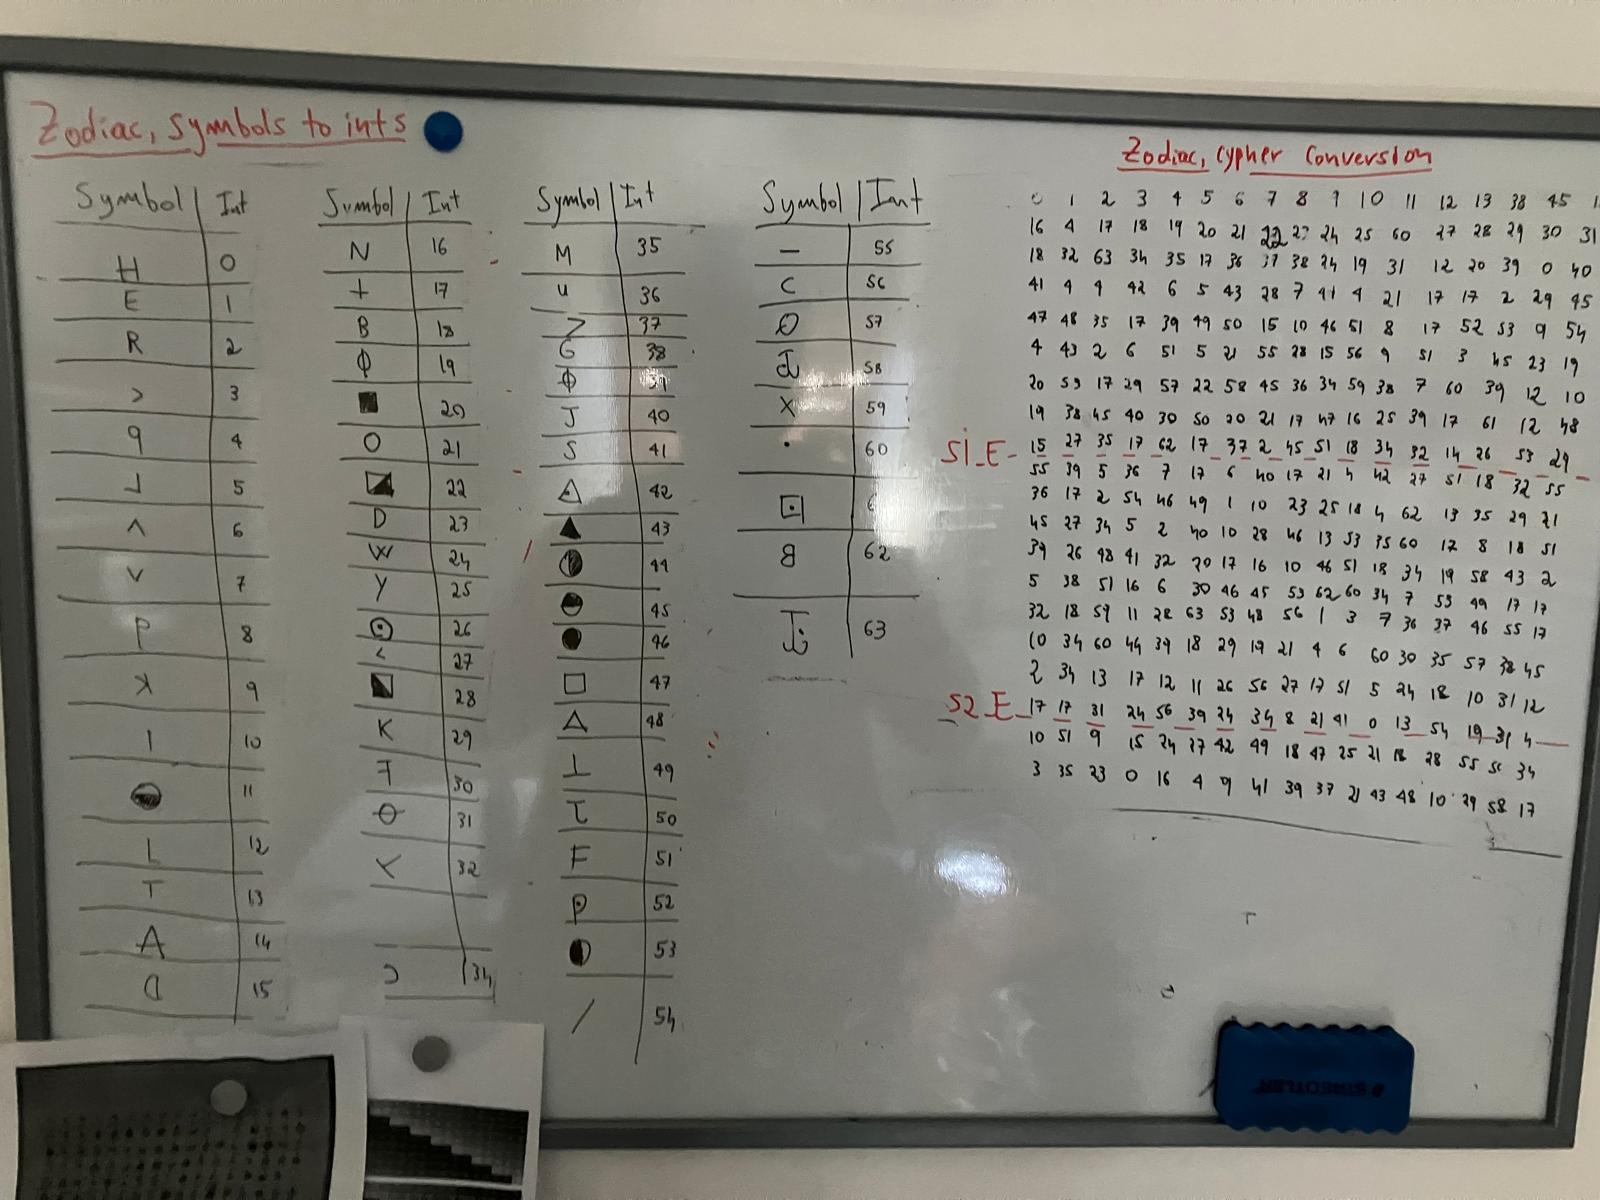 Zodiac, symbols to ints
Symbol Int
H 0
E 1
R 2
> 3
9 4
⅃ 5
Λ 6
V 7
P 8
9
I 10
11
L 12
T 13
A 14
15
Symbol Int
N 16
+ 17
B 18
Φ 19
■ 20
O 21
22
D 23
W 24
Y 25
⊙ 26
< 27
28
K 29
30
31
32
34
Symbol Int
M 35
u 36
37
G 38
J 40
S 41
42
▲ 43
44
45
● 46
□ 47
△ 48
⊥ 49
50
F 51
52
53
/ 54
Symbol Int
— 55
C 56
57
58
X 59
· 60
⊡
62
63
Zodiac, cypher conversion
0 1 2 3 4 5 6 7 8 9 10 11 12 13 38 45
16 4 17 18 19 20 21 22 23 24 25 60 27 28 29 30 31
18 32 63 34 35 17 36 37 38 24 19 31 12 20 39 0 40
41 4 4 42 6 5 43 28 7 41 4 21 17 17 2 29 45
47 48 35 17 39 49 50 15 10 46 51 8 17 52 53 9 54
4 43 2 6 51 5 21 55 28 15 56 9 51 3 45 23 19
20 59 17 29 57 22 58 45 36 34 59 38 7 60 39 12 10
19 38 45 40 30 50 20 21 17 47 16 25 39 17 61 12 48
S1_E- 15 27 35 17 62 17 37 2 45 51 18 34 32 14 26 53 29
55 39 5 36 7 17 6 40 17 21 4 42 27 51 18 32 55
36 17 2 54 46 49 1 10 23 25 18 4 62 13 35 29 21
45 27 34 5 2 40 10 28 46 13 53 35 60 12 8 18 51
39 26 98 41 32 20 17 16 10 46 51 18 34 19 58 43 2
5 38 51 16 6 30 46 45 53 62 60 34 7 53 49 17 17
32 18 59 11 28 63 53 48 56 1 3 7 36 37 46 55 17
10 34 60 44 39 18 29 19 21 4 6 60 30 35 57 38 45
2 34 13 17 12 11 26 56 27 17 51 5 24 18 10 31 12
S2_E- 17 17 31 24 56 39 24 34 8 21 41 0 13 54 19 31 4
10 51 9 15 24 37 42 49 18 47 25 21 18 28 55 51 34
3 35 23 0 16 4 9 41 39 37 21 43 48 10 29 58 17
STAEDTLER